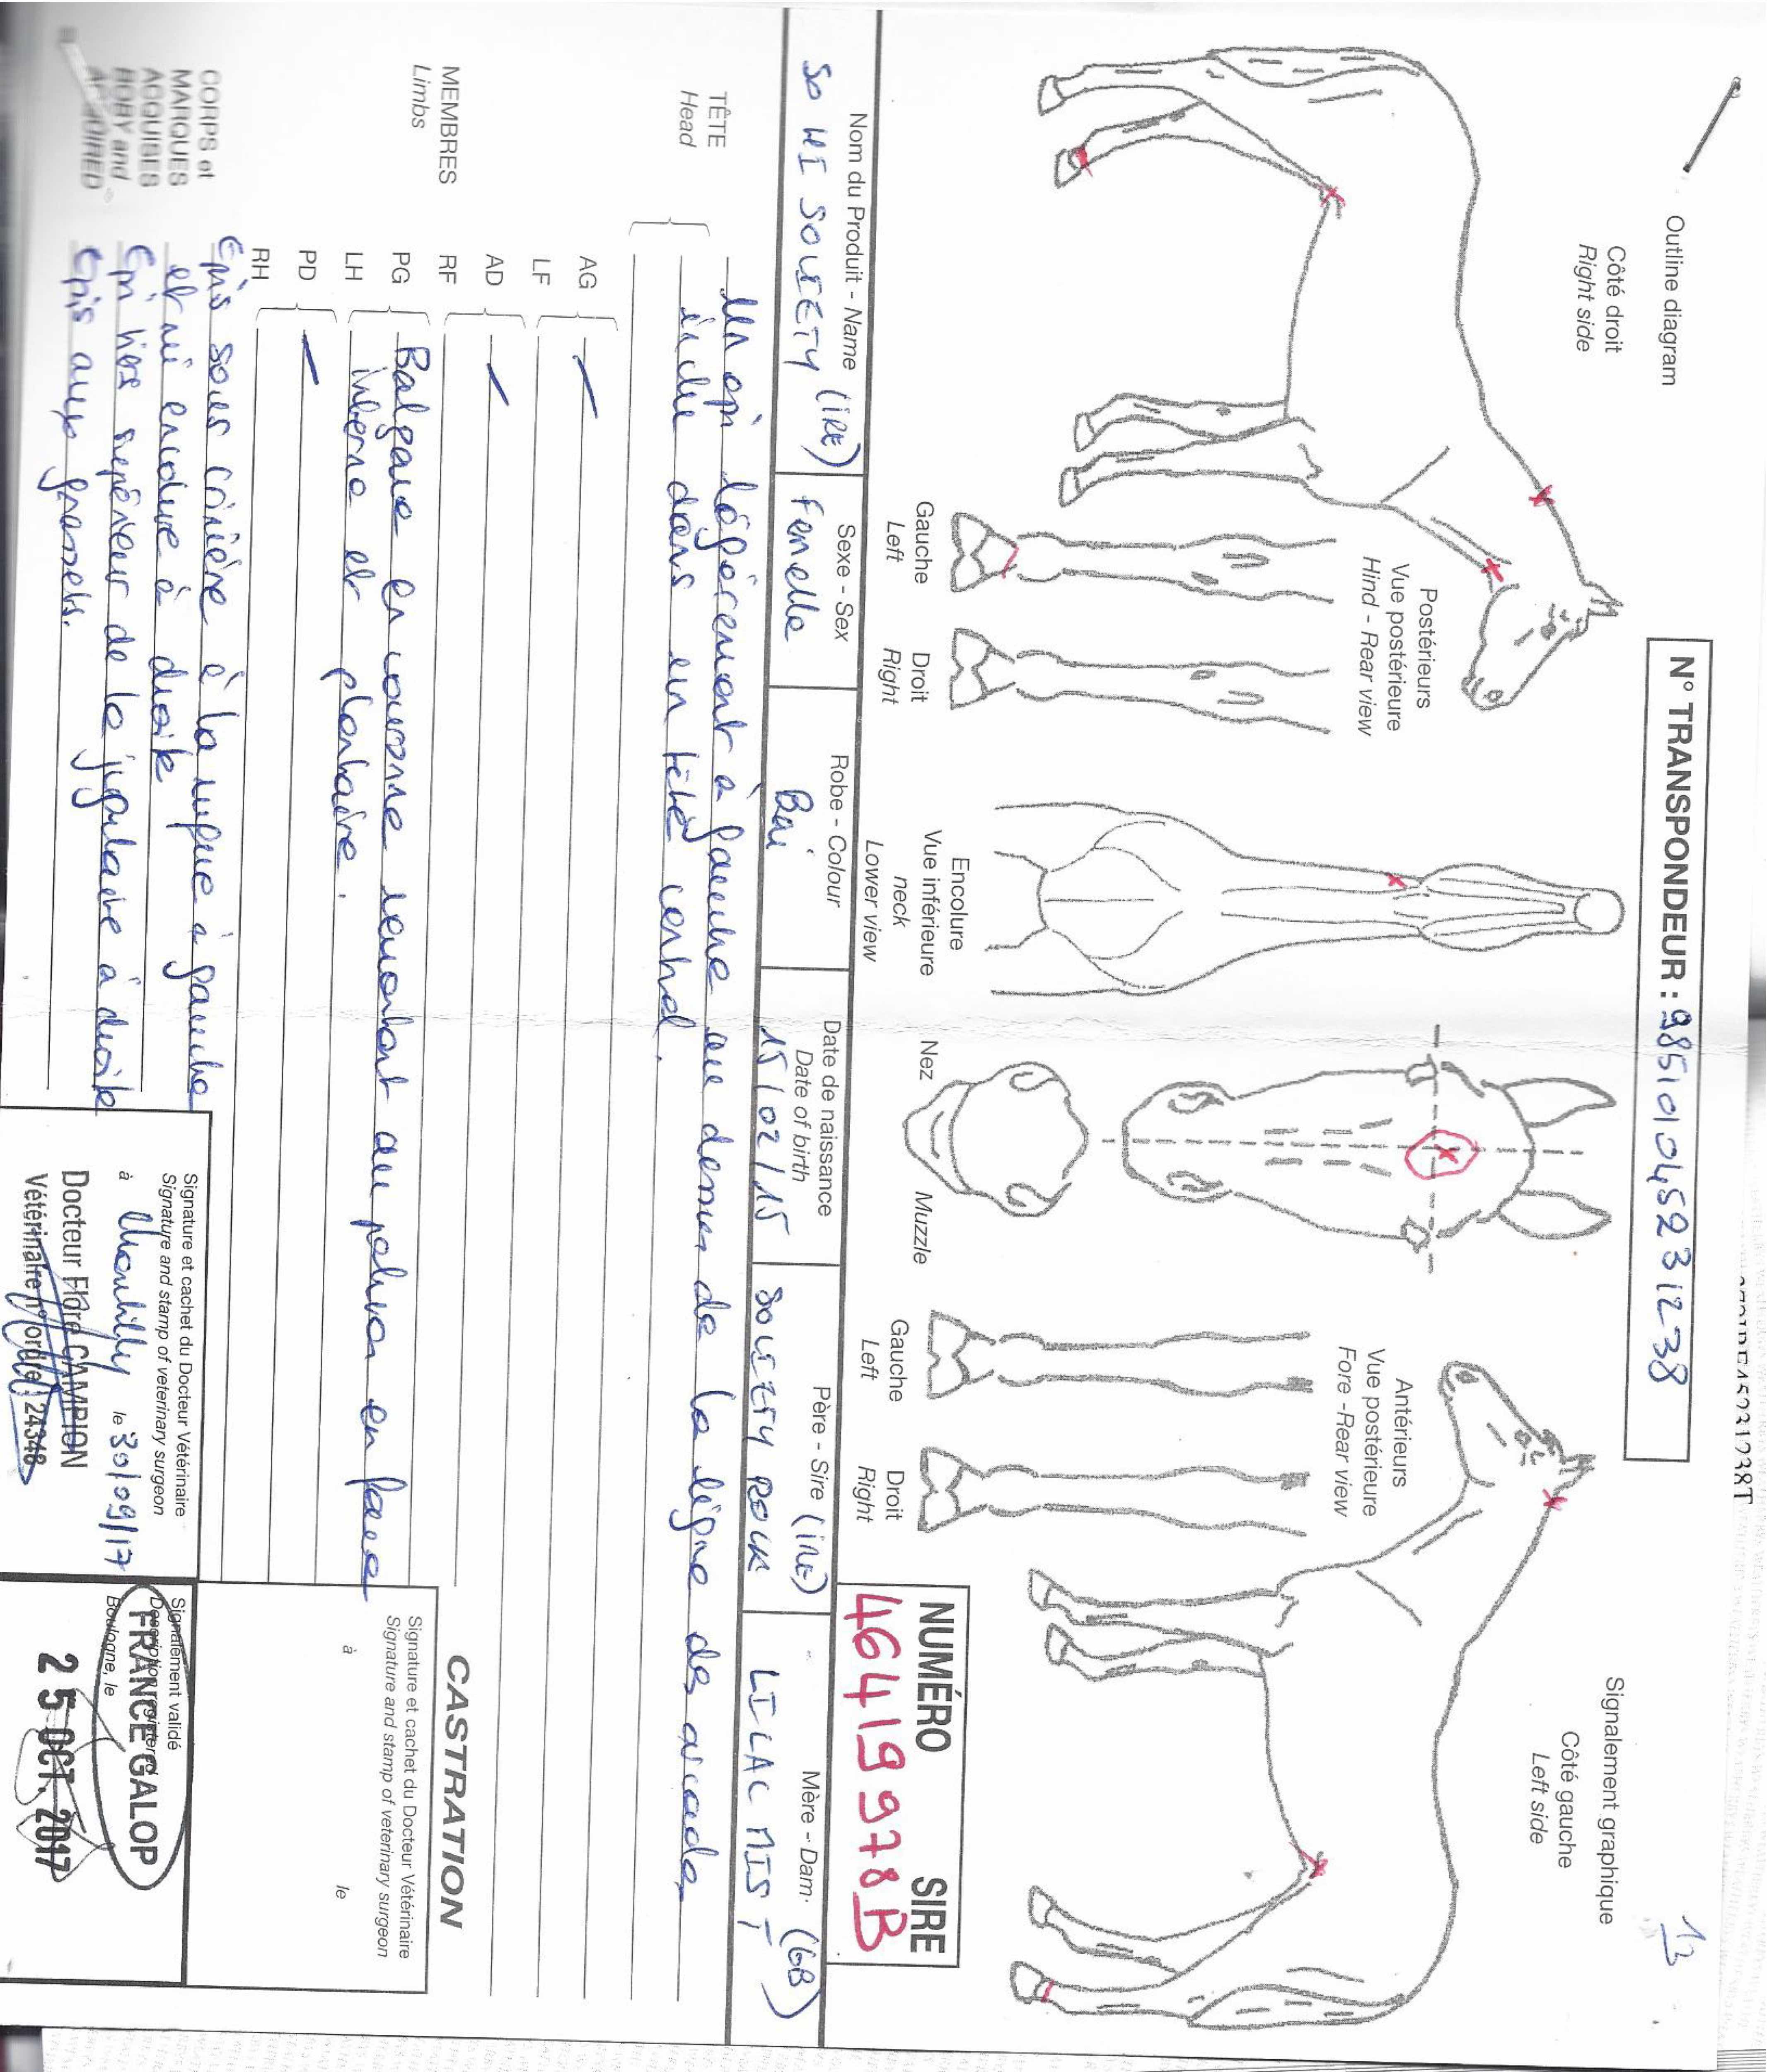 Outline diagram
N° TRANSPONDEUR : 985101045231238
Signalement graphique
13
Côté droit
Right side
Côté gauche
Left side
Postérieurs
Vue postérieure
Hind - Rear view
Antérieurs
Vue postérieure
Fore - Rear view
Gauche
Left
Droit
Right
Encolure
Vue inférieure
neck
Lower view
Nez
Muzzle
Gauche
Left
Droit
Right
NUMÉRO SIRE
46419978B
Nom du Produit - Name
SO HI SOCIETY (IRE)
Sexe - Sex
Femelle
Robe - Colour
Bai
Date de naissance
Date of birth
15/02/15
Père - Sire
SOCIETY ROCK (IRE)
Mère - Dam.
LILAC MIST (GB)
TÊTE
Head
Un épi légèrement à gauche au dessus de la ligne des arcades
inclu dans en tête central.
MEMBRES
Limbs
AG
LF
AD
RF
PG
LH
Balzane en couronne remontant au paturon en face
interne et plantaire.
PD
RH
CORPS et
MARQUES
ACQUISES
BODY and
ACQUIRED
Epis sous crinière à la nuque à gauche
et mi encolure à droite
Epi tiers supérieur de la jugulaire à droite
Epis aux grassets.
CASTRATION
Signature et cachet du Docteur Vétérinaire
Signature and stamp of veterinary surgeon
à
le
Signature et cachet du Docteur Vétérinaire
Signature and stamp of veterinary surgeon
à Chantilly le 30/09/17
Docteur Flore CAMPION
Vétérinaire n°ordre 24348
Signalement validé
FRANCE GALOP
Boulogne, le
25 OCT. 2017